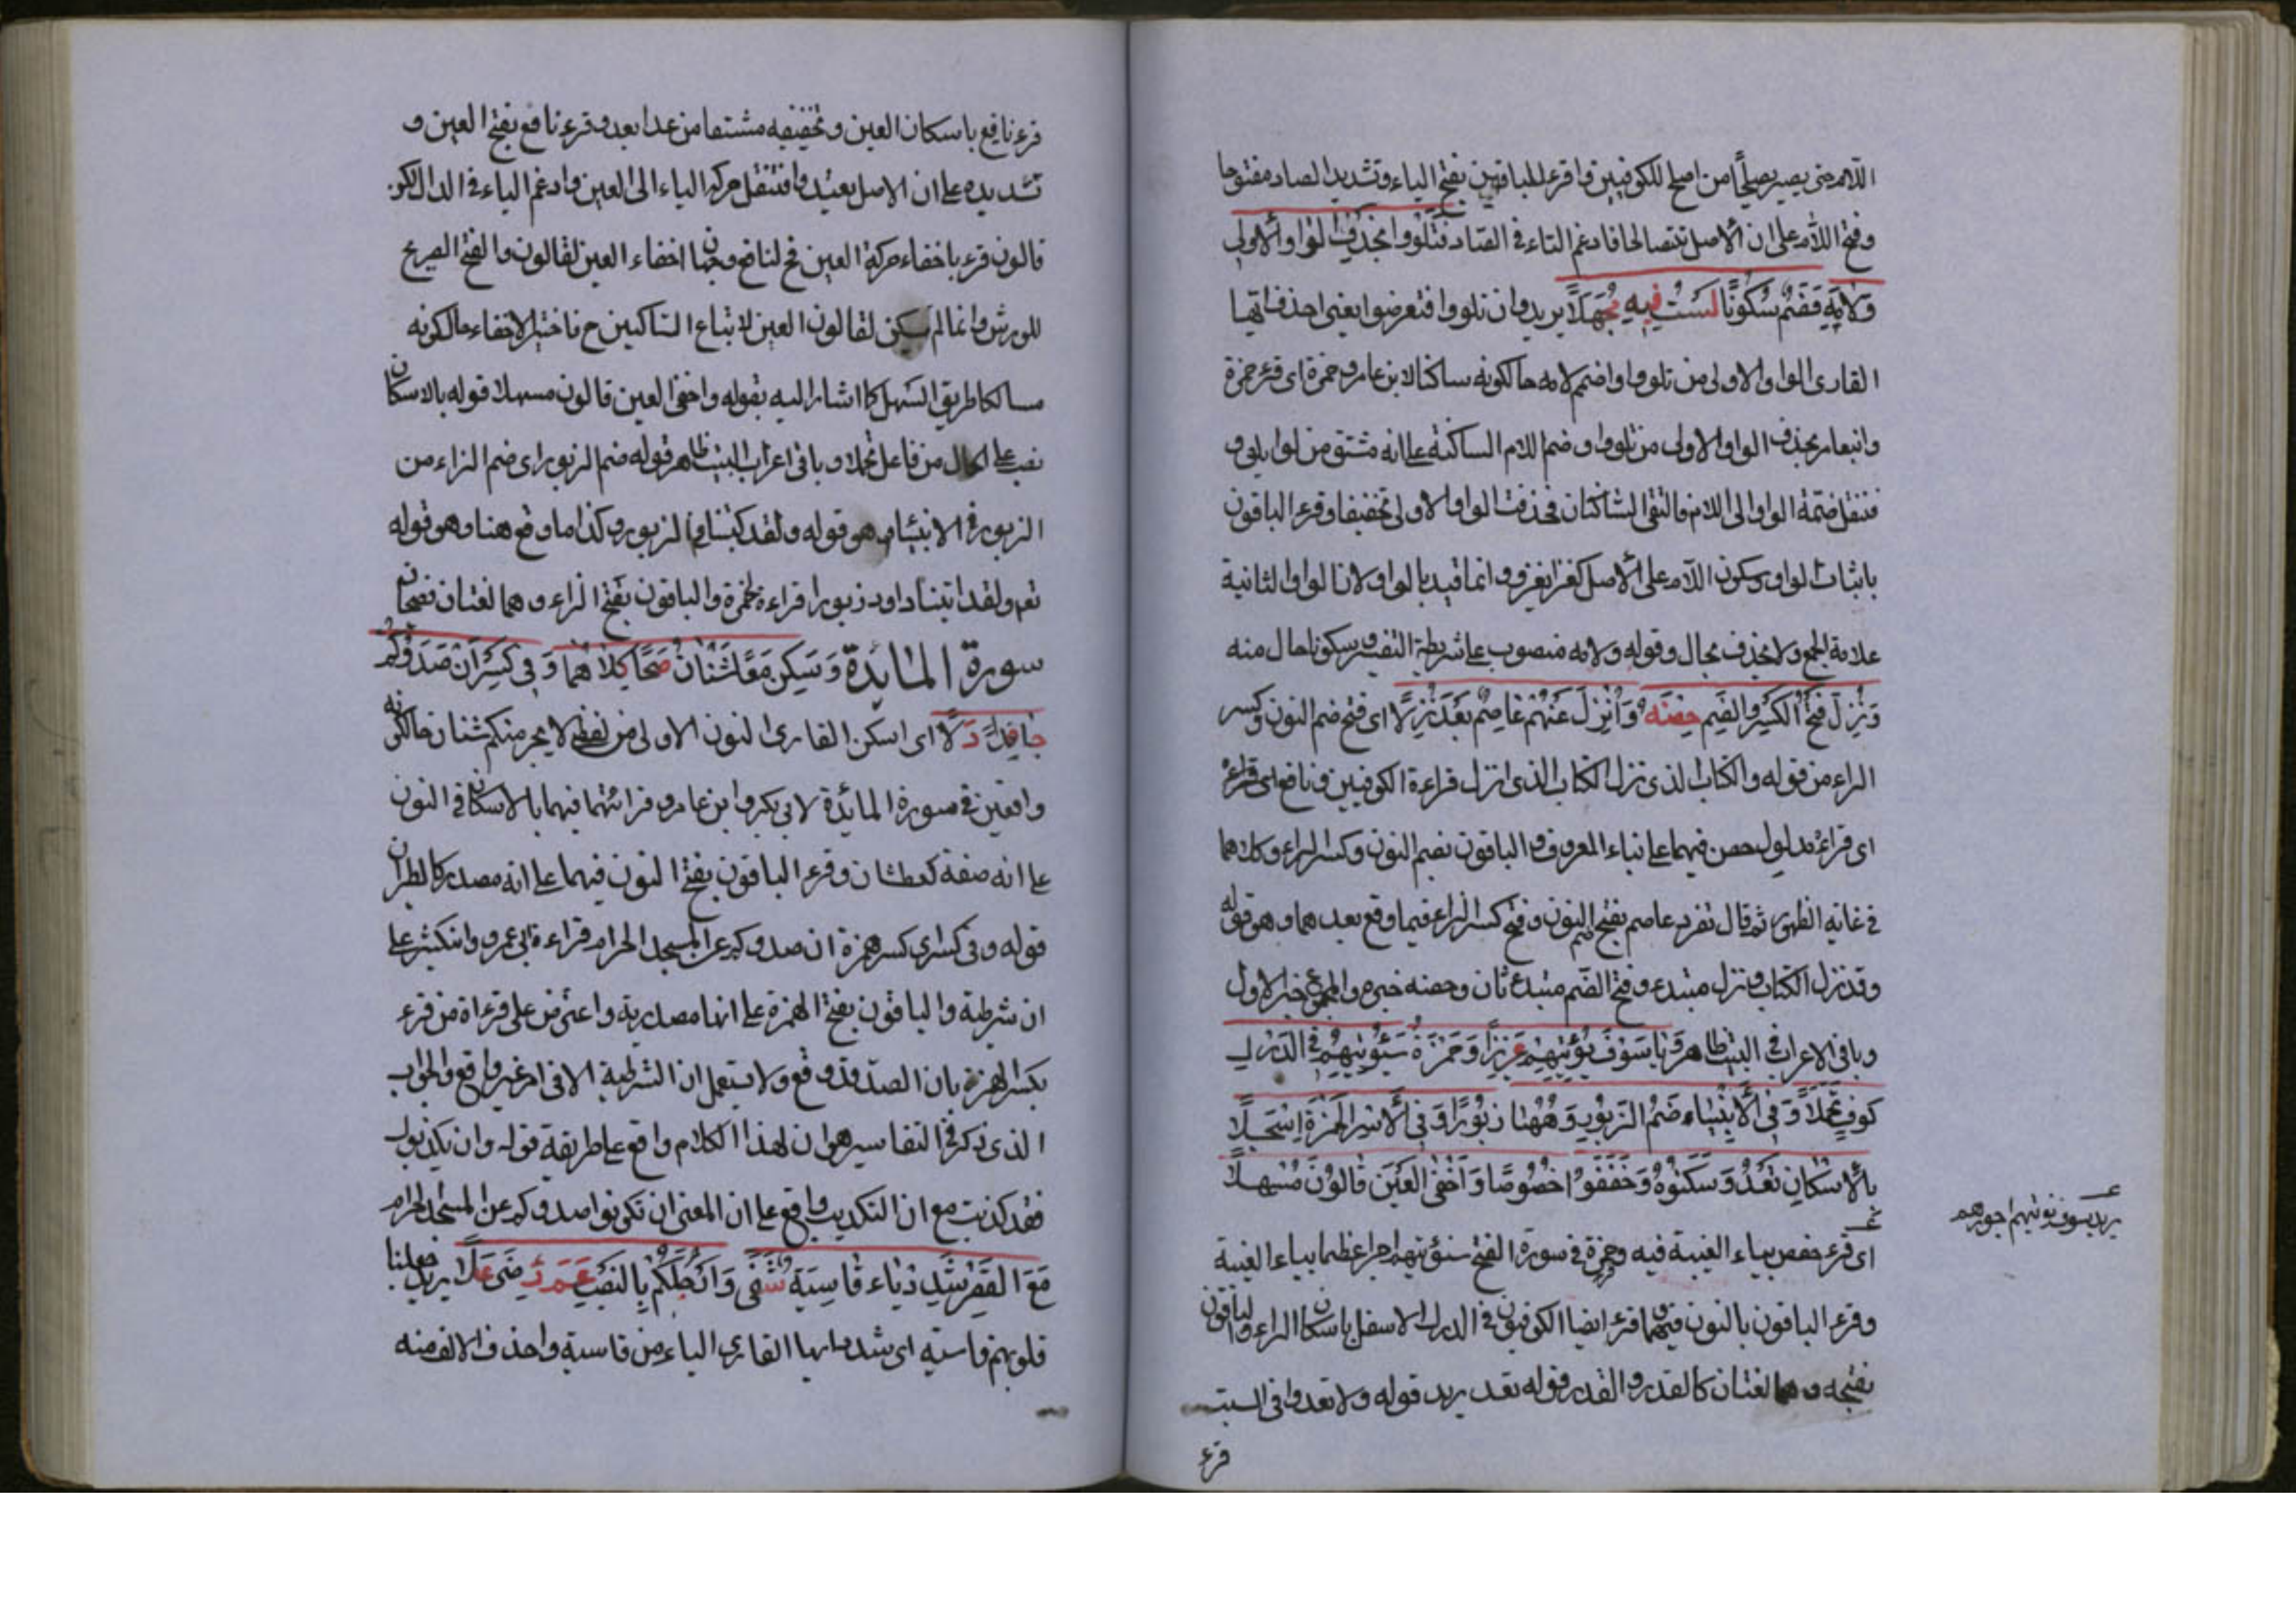 اللام حتى يصير يصلحا من اصلح للكوفيين واقرء للباقين بفتح الياء وتشديد الصاد مفتوحا
وفتح اللام على ان الاصل يتصالحا فادغم التاء في الصاد وتلووا بحذف الواو الاولى
ولامه فضم سكونا لست فيه مجهلا يريد وان تلووا او تعرضوا يعني احذف ايها
القارى الواو الاولى من تلووا واضم لامه حال كونه ساكنا لابن عامر وحمزة اى قرء حمزة
وابن عامر بحذف الواو الاولى من تلووا وضم اللام الساكنة على انه مشتق من لوا يلوى
فنقل ضمة الواو الى اللام فالتقى الساكنان فحذفت الواو الاولى تخفيفا وقرء الباقون
باثبات الواو وسكون اللام على الاصل كغزا يغزو وانما قيد بالواو الاولى لان الواو الثانية
علامة الجمع ولا يحذف بحال وقوله ولامه منصوب على شريطة التفسير وسكونا حال منه
ونزل فتح الكسر والضم حصنه وانزل عنهم عاصم بعد نزلا اى فتح ضم النون وكسر
الراء من قوله والكتاب الذى نزل الكتاب الذى انزل قراءة الكوفيين ونافع اى قراءة
اى قراءة مدلول حصن فيهما على بناء المعروف والباقون بضم النون وكسر الراء وكلاهما
في غاية الظهور ثم قال تفرد عاصم بفتح ضم النون وفتح كسر الراء فيما وقع بعدهما وهو قوله
وقد نزل الكتاب ونزل مبتدء وفتح الضم مبتدء ثان وحصنه خبره والمجموع خبر الاول
وباقي الاعراب في البيت ظاهر ويا سوف يؤتيهم عزيز وحمزة سيؤتيهم في الدرك
كوف تحملا وفي الانبياء ضم الزبور وههنا زبورا وفي الاسرا لحمزة اسجلا
بالاسكان تعدوا وسكنوه وخففوا خصوصا واخفى العين قالون مسهلا
اى قرء حفص بياء الغيبة فيه وحمزة في سورة الفتح سنؤتيهم اجرا عظيما بياء الغيبة
وقرء الباقون بالنون فيهما وقرء ايضا الكوفيون في الدرك الاسفل باسكان الراء والباقون
بفتحه وهما لغتان كالقدر والقدر قوله تعد يريد قوله ولا تعدوا في السبت
قرء
يريد سوف نؤتيهم اجورهم
قرء نافع باسكان العين وتخفيفه مشتقا من عدا يعدو وقرء نافع بفتح العين و
تشديده على ان الاصل يعتدوا فنقل حركة الياء الى العين وادغم الياء في الدال لكن
قالون قرء باخفاء حركة العين فح لنافع وجهان اخفاء العين لقالون والفتح الصريح
للورش وانما لم يسكن لقالون العين لاتباع الساكنين ح فاختير الاخفاء حال كونه
سالكا طريق السهل كما اشار اليه بقوله واخفى العين قالون مسهلا قوله بالاسكان
نصب على الحال من فاعل تحملا وباقي اعراب البيت ظاهر قوله ضم الزبور اى ضم الزاء من
الزبور في الانبياء وهو قوله ولقد كتبنا في الزبور وكذا ما وقع هنا وهو قوله
تعم ولقد اتينا داود زبورا قراءة لحمزة والباقون بفتح الزاء وهما لغتان فصيحان
سورة المائدة وسكن معا شنان صحا كلاهما وفي كسر ان صدوكم
حامد دلا اى اسكن القارى النون الاولى من لفظ لا يجرمنكم شنان حال كونه
واقعين في سورة المائدة لابي بكر وابن عامر وقرائتهما فيهما بالاسكان في النون
على انه صفة كعطشان وقرء الباقون بفتح النون فيهما على انه مصدر كالطيران
قوله وفي كسر اى كسر همزة ان صدوكم عن المسجد الحرام قراءة ابي عمرو وابن كثير على
ان شرطية والباقون بفتح الهمزة على انها مصدرية واعترض على قراءة من قرء
بكسر الهمزة بان الصد قد وقع ولا يستعمل ان الشرطية الا في امر غير واقع والجواب
الذى ذكر في التفاسير هو ان هذا الكلام واقع على طريقة قوله وان يكذبوك
فقد كذبت مع ان التكذيب واقع على ان المعنى ان تكونوا صدوكم عن المسجد الحرام
مع القصر شدد ياء قاسية شفى وارجلكم بالنصب عم رضى علا يريد جعلنا
قلوبهم قاسية اى شدد ايها القارى الياء من قاسية واحذف الالف منه